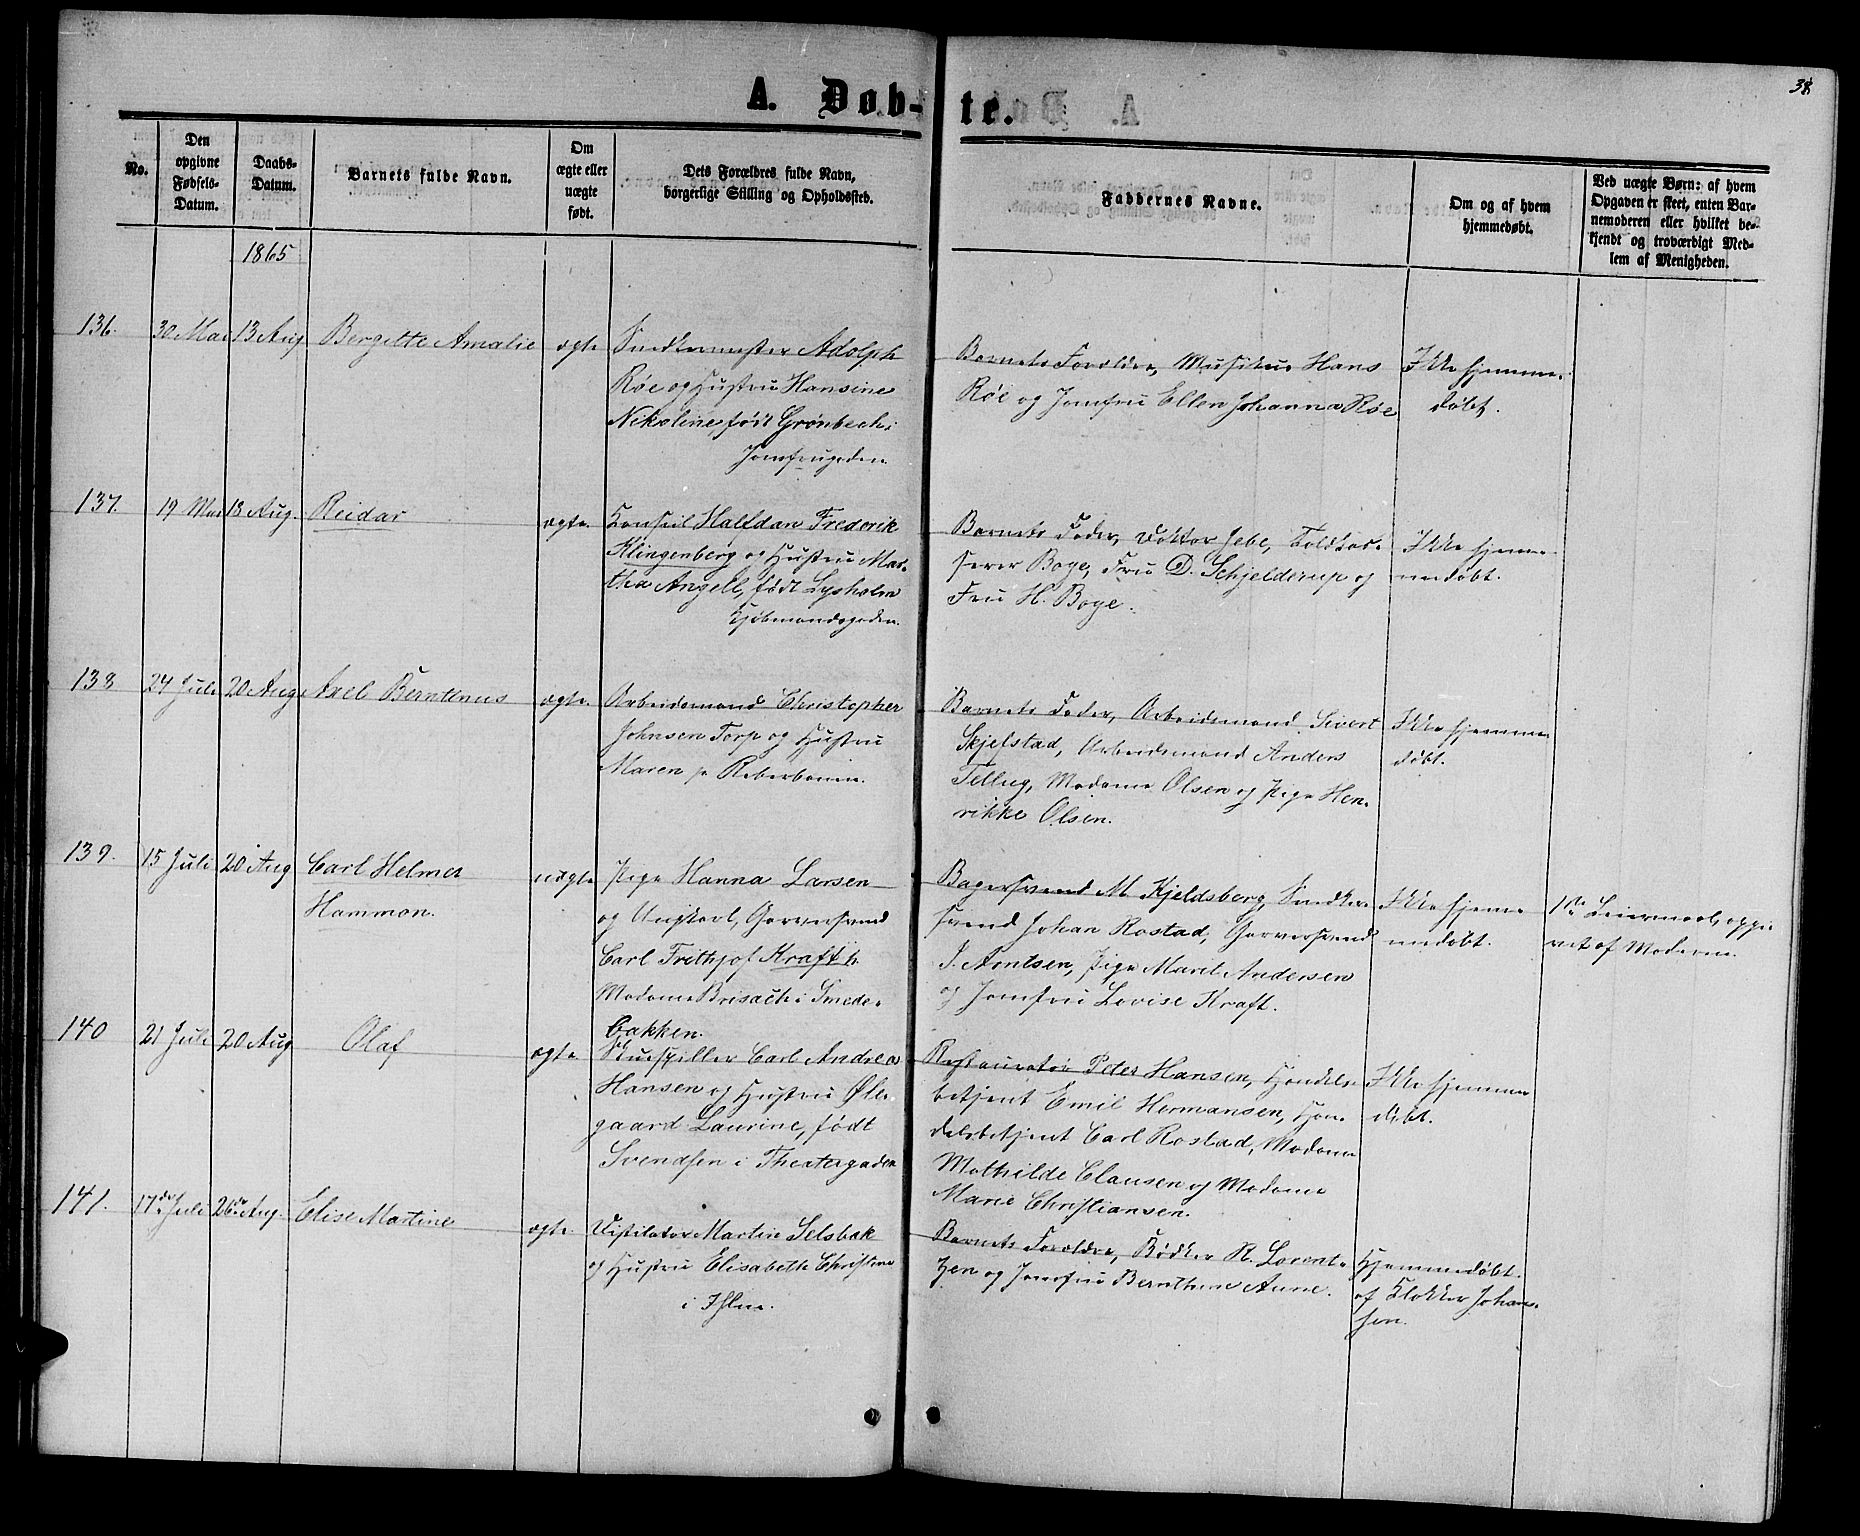 38
A. Døb-te.
No.
Den
opgivne
Fødsels-
Datum.
Daabs-
Datum.
Barnets fulde Navn.
Om
ægte eller
uægte
født.
Dets Forældres fulde Navn,
borgerlige Stilling og Opholdssted.
Faddernes Navne.
Om og af hvem
hjemmedøbt.
Ved uægte Børn: af hvem
Opgaven er skeet, enten Bar-
nemoderen eller hvilket be-
kjendt og troværdigt Med-
lem af Menigheden.
1865
136.
30 Mai
13 Aug
Bergitte Amalie
ægte
Snedkermester Adolph
Røe og Hustru Hansine
Nikoline, født Grønbech i
Jomfrugaden
Barnets Forældre, Musikus Hans
Røe og Jomfru Ellen Johanna Røe
Ikke hjemme-
døbt.
137.
19 Mai
13 Aug.
Reidar
ægte.
Konsul Halfdan Frederik
Klingenberg og Hustru Mar-
tha Angell, født Lysholm
Kjøbmandsgaden.
Barnets Fader, Doktor Jebe, Toldkas-
serer Boye, Fru D. Schjelderup og
Fru H. Boye.
Ikke hjem-
medøbt.
138
24 Juli
20 Aug
Axel Berntinus
ægte.
Arbeidsmand Christopher
Johnsen Torp og Hustru
Maren p. Reberbanen.
Barnets Fader, Arbeidsmand Sivert
Skjefstad, Arbeidsmand Anders
Tellug, Madame Olsen og Pige Hen-
rikke Olsen.
Ikke hjemme-
døbt.
139.
15 Juli
20 Aug
Carl Helmer
Hammon.
uægte
Pige Hanna Larsen
og Ungkarl, Garversvend
Carl Frithjof Kraft h.
Madame Brisach i Smede-
bakken.
Bagersvend M. Kjeldsberg, Snedker-
svend Johan Rostad, Garversvend
J. Arntsen, Pige Marit Andersen
og Jomfru Lovise Kraft.
Ikke hjem-
medøbt.
1ste Leiermaal, opgi-
vet af Moderen.
140
21 Juli
20 Aug
Olaf
ægte.
Skuespiller Carl Andreas
Hansen og Hustru Øle-
gaard Laurine, født
Svendsen i Theatergaden
Restauratør Peter Hansen, Handels-
betjent Emil Hermansen, Han-
delsbetjent Carl Rostad, Madame
Mathilde Clausen og Madame
Marie Christiansen.
Ikke hjemme-
døbt.
141.
17de Juli
26de Aug.
Elise Martine
ægte.
Distilatør Martin Selsbak
og Hustru Elisabeth Christine
i Ihlen.
Barnets Forældre, Bødker R. Lorent-
zen og Jomfru Bernthine Aune.
Hjemmedøbt
af Klokker Johan-
sen.